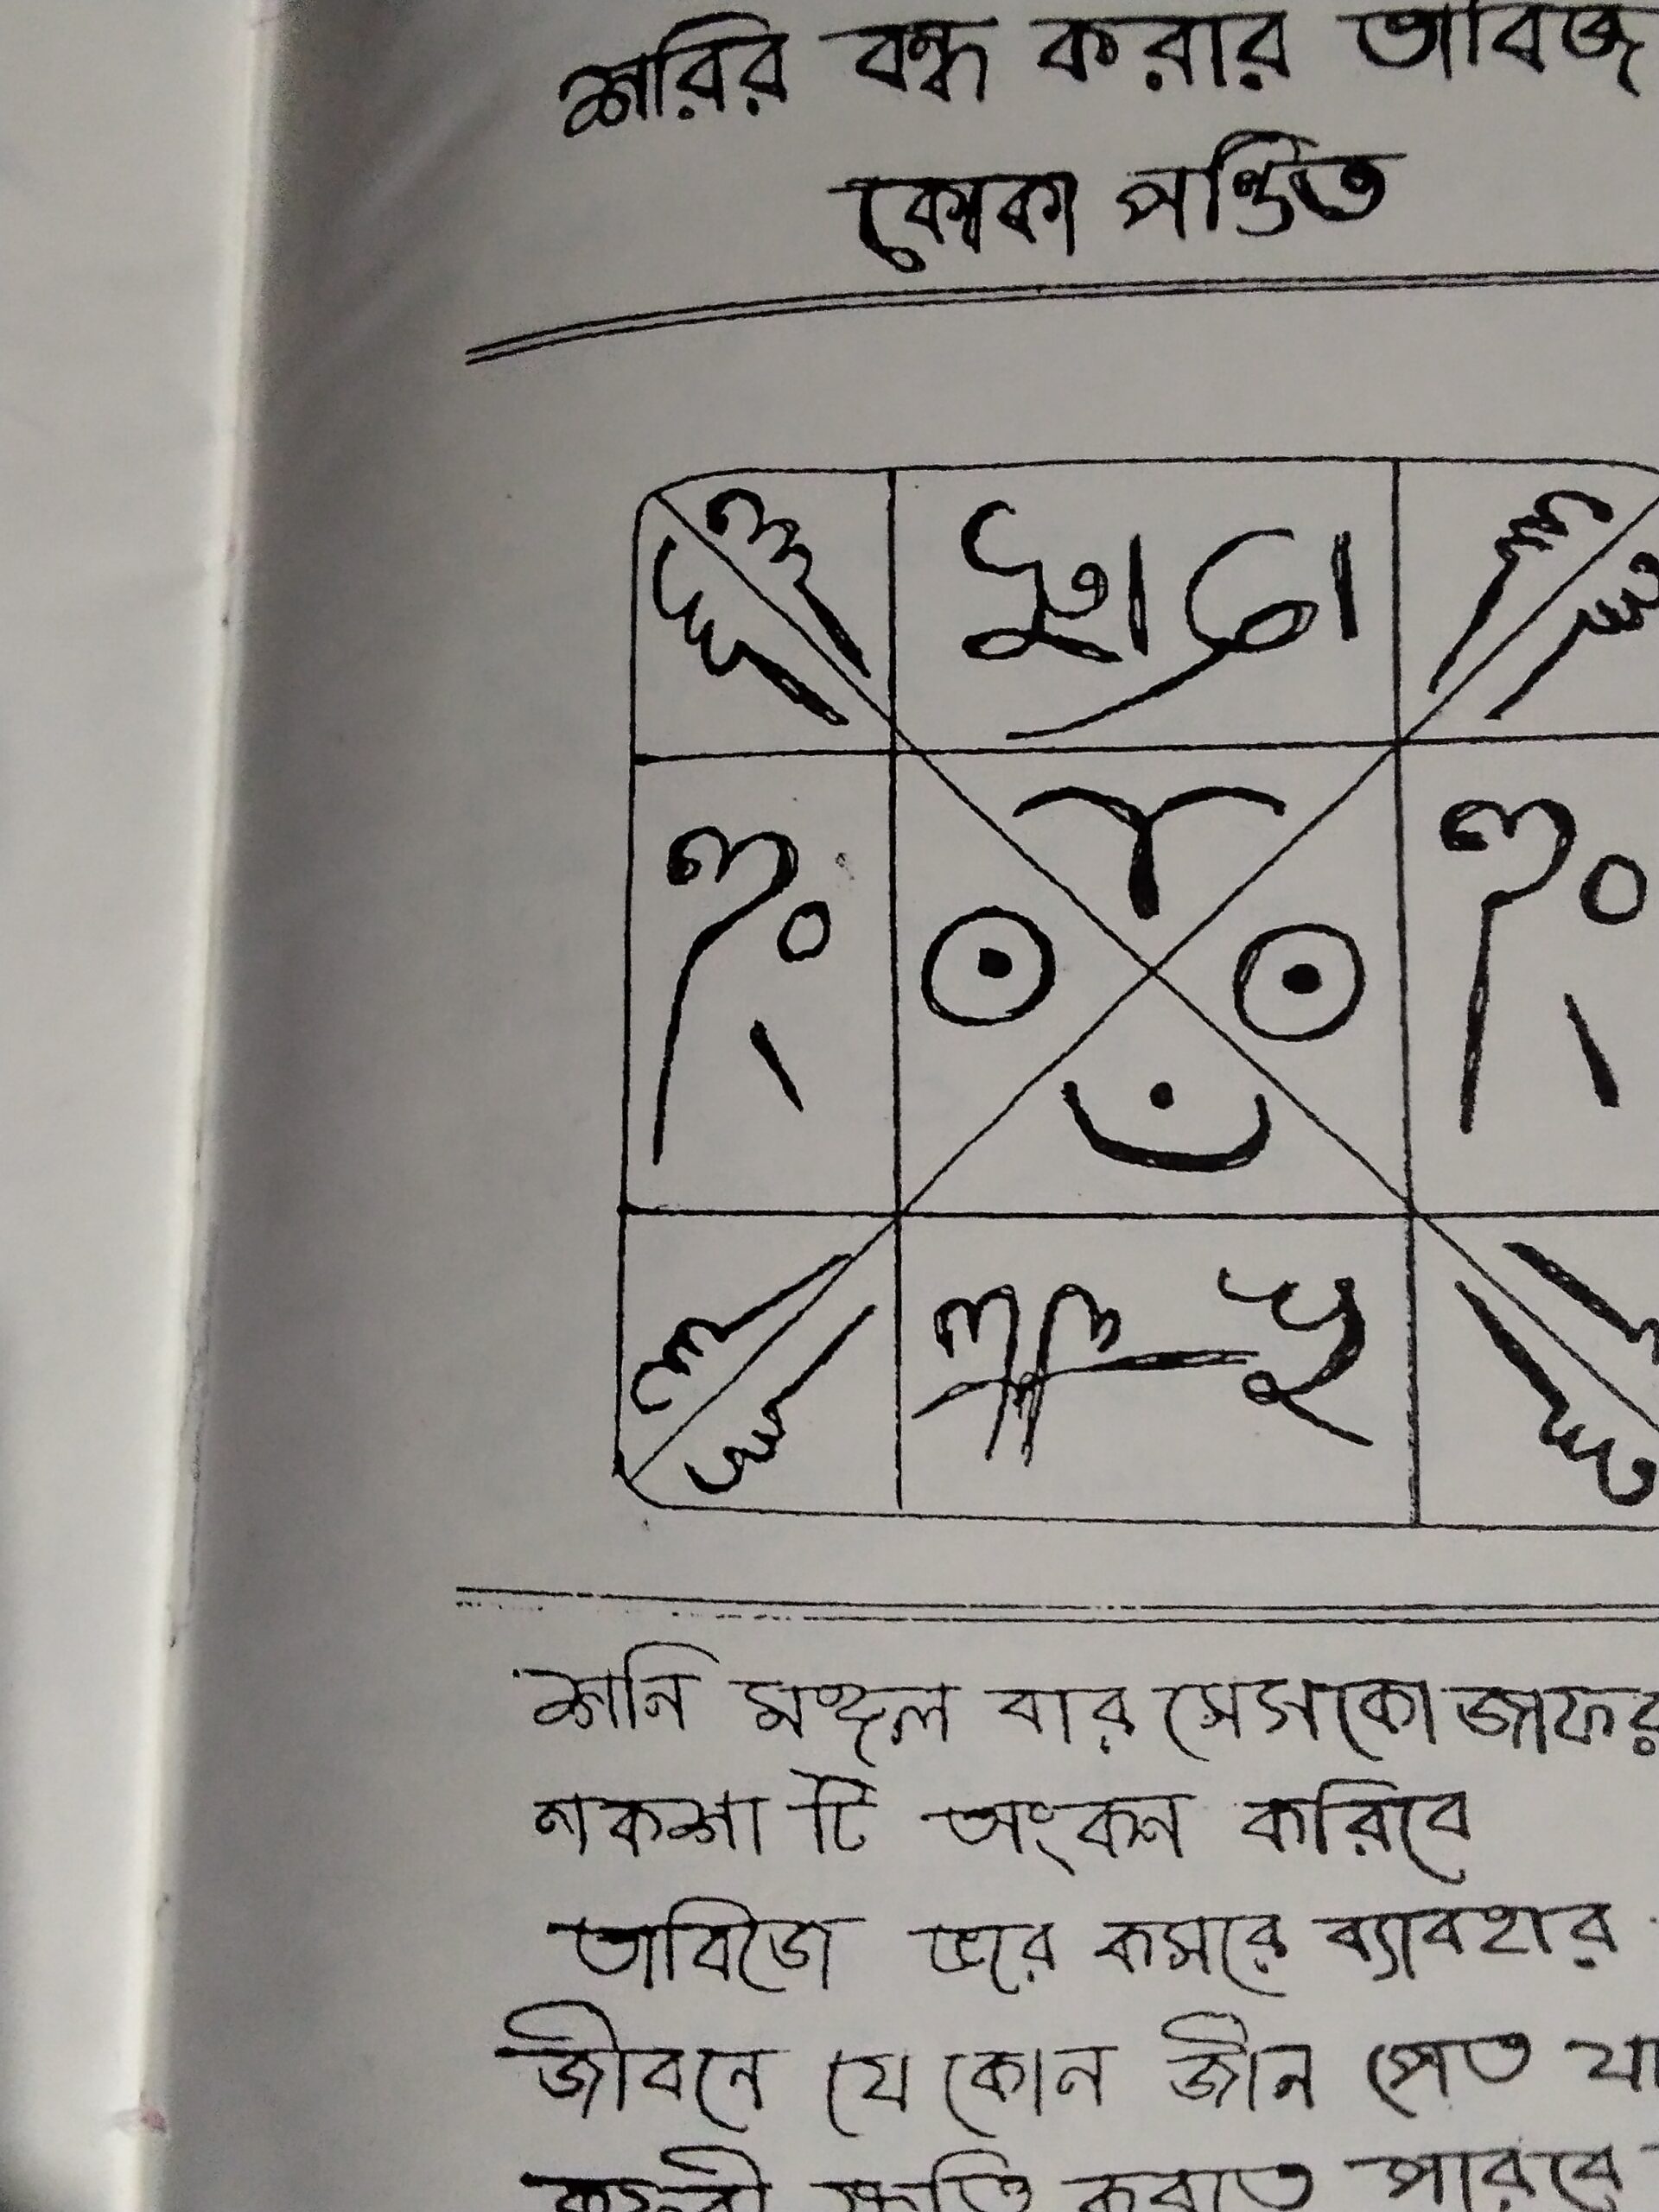 শরির বন্ধ করার তাবিজ
কোকা পন্ডিত
শনি মঙ্গল বার মেসকো জাফর
নকশা টি অংকন করিবে
তাবিজে ভরে কমরে ব্যাবহার
জীবনে যে কোন জীন প্রেত যা
ক্ষতি করতে পারবে